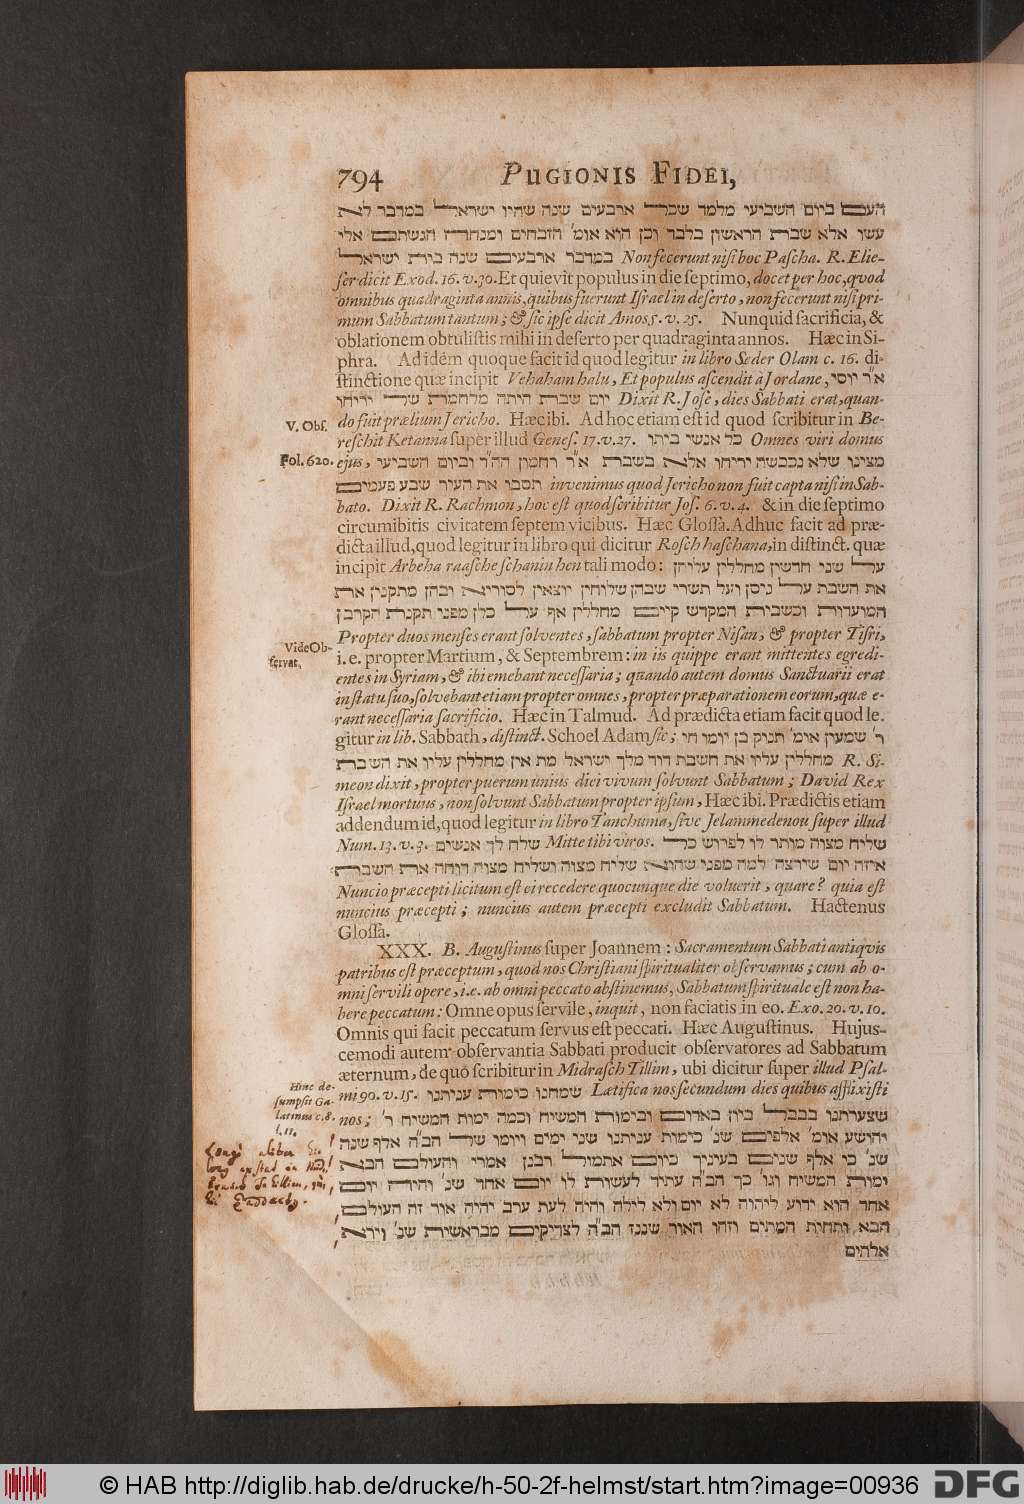 794 PUGIONIS FIDEI,
העם ביום השביעי מלמד שכל ארבעים שנה שהיו ישראל במדבר לא
עשו אלא שבת הראשון בלבד וכן הוא אומ׳ הזבחים ומנחה הגשתם אלי
במדבר ארבעים שנה בית ישראל Non fecerunt nisi hoc Pascha. R. Elie-
ſer dicit Exod. 16. v. 30. Et quievit populus in die ſeptimo, docet per hoc, quod
omnibus quadraginta annis, quibus fuerunt Iſrael in deſerto, non fecerunt niſi pri-
mum Sabbatum tantum; & ſic ipſe dicit Amos 5. v. 25. Nunquid ſacrificia, &
oblationem obtuliſtis mihi in deſerto per quadraginta annos. Hæc in Si-
phra. Ad idem quoque facit id quod legitur in libro Seder Olam c. 16. di-
ſtinctione quæ incipit Vehaham halu, Et populus aſcendit à Jordane, א״ר יוסי
יום שבת היתה מלחמת של יריחו Dixit R. Joſe, dies Sabbati erat, quan-
do fuit prælium Jericho. Hæc ibi. Ad hoc etiam eſt id quod ſcribitur in Be-
V. Obſ.
reſchit Ketanna ſuper illud Geneſ. 17. v. 27. כל אנשי ביתו Omnes viri domus
Fol. 620. ejus, מצינו שלא נכבשה יריחו אלא בשבת א״ר רחמון הה״ד וביום השביעי
תסבו את העיר שבע פעמים invenimus quod Jericho non fuit capta niſi in Sab-
bato. Dixit R. Rachmon, hoc eſt quod ſcribitur Joſ. 6. v. 4. & in die ſeptimo
circumibitis civitatem ſeptem vicibus. Hæc Gloſſa. Adhuc facit ad præ-
dicta illud, quod legitur in libro qui dicitur Roſch haſchana, in diſtinct. quæ
incipit Arbeha raaſche ſchanin hen tali modo: על שני חדשין מחללין עליהן
את השבת על ניסן ועל תשרי שבהן שלוחין יוצאין לסוריא ובהן מתקנין את
המועדות וכשבית המקדש קיים מחללין אף על כלן מפני תקנת הקרבן
Propter duos menſes erant ſolventes, ſabbatum propter Niſan, & propter Tiſri,
Vide Ob-
ſervat.
i. e. propter Martium, & Septembrem: in iis quippe erant mittentes egredi-
entes in Syriam, & ibi emebant neceſſaria; quando autem domus Sanctuarii erat
in ſtatu ſuo, ſolvebant etiam propter omnes, propter præparationem eorum, quæ e-
rant neceſſaria ſacrificio. Hæc in Talmud. Ad prædicta etiam facit quod le.
gitur in lib. Sabbath, diſtinct. Schoel Adam ſic; ר׳ שמעון אומ׳ תנוק בן יומו חי
מחללין עליו את השבת דוד מלך ישראל מת אין מחללין עליו את השבת R. Si-
meon dixit, propter puerum unius diei vivum ſolvunt Sabbatum; David Rex
Iſrael mortuus, non ſolvunt Sabbatum propter ipſum, Hæc ibi. Prædictis etiam
addendum id, quod legitur in libro Tanchuma, ſive Jelammedenou ſuper illud
Num. 13. v. 3. שלח לך אנשים Mitte tibi viros. שליח מצוה מותר לו לפרוש כל
איזה יום שירצה למה מפני שהוא שליח מצוה ושליח מצוה דוחה את השבת:
Nuncio præcepti licitum eſt ei recedere quocunque die voluerit, quare? quia eſt
nuncius præcepti; nuncius autem præcepti excludit Sabbatum. Hactenus
Gloſſa.
XXX. B. Auguſtinus ſuper Joannem: Sacramentum Sabbati antiqvis
patribus eſt præceptum, quod nos Chriſtiani ſpiritualiter obſervamus; cum ab o-
mni ſervili opere, i. e. ab omni peccato abſtinemus, Sabbatum ſpirituale eſt non ha-
bere peccatum: Omne opus ſervile, inquit, non faciatis in eo. Exo. 20. v. 10.
Omnis qui facit peccatum ſervus eſt peccati. Hæc Auguſtinus. Hujus-
cemodi autem obſervantia Sabbati producit obſervatores ad Sabbatum
æternum, de quo ſcribitur in Midraſch Tillim, ubi dicitur ſuper illud Pſal-
Hinc de-
ſumpſit Ga-
latinus c. 8.
l. 11.
mi 90. v. 15. שמחנו כימות עניתנו Lætifica nos ſecundum dies quibus afflixiſti
nos; שצערתנו בבבל ביון באדום ובימות המשיח וכמה ימות המשיח ר׳
יהושע אומ׳ אלפים שנ׳ כימות עניתנו שני ימים ויומו של הב״ה אלף שנה
שנ׳ כי אלף שנים בעיניך כיום אתמול ורבנן אמרי והעולם הבא
ימות המשיח וגו׳ כך הב״ה עתיד לעשות לו יום אחד שנ׳ והיה יום
אחד הוא ידוע ליהוה לא יום ולא לילה והיה לעת ערב יהיה אור זה העולם
הבא, ותחית המתים וזהו האור שגנז הב״ה לצדיקים מבראשית שנ׳ וירא
אלהים
© HAB http://diglib.hab.de/drucke/h-50-2f-helmst/start.htm?image=00936 DFG